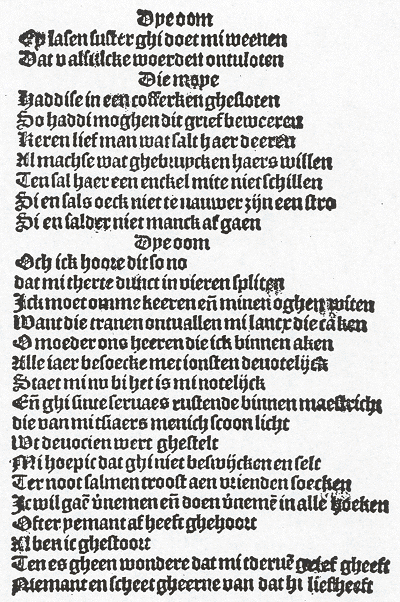 Dye oom
Ey lasen suster ghi doet mi weenen
Dat v alsulcke woerden ontuloten
Die moye
Haddise in een cofferken ghesloten
So haddi moghen dit grief bewceren
Keren lief man wat salt haer deeren
Al machse wat ghebruycken haers willen
Ten sal haer een enckel mite niet schillen
Si en sals oeck niet te nauwer zijn een stro
Si en salder niet manck af gaen
Dye oom
Och ick hoore dit so no
dat mi therte dunct in vieren spliten
Jck moet omme keeren en̄ minen oghen witen
Want die tranen ontuallen mi lancx die caken
O moeder ons heeren die ick binnen aken
Alle iaer besoecke met ionsten deuotelijck
Staet mi nv bi het is mi notelijck
En̄ ghi sinte seruaes rustende binnen maestricht
die van mi tsiaers menich scoon licht
Wt deuocien wert ghestelt
Mi hoepic dat ghi niet beswijcken en selt
Ter noot salmen troost aen vrienden soecken
Ic wil gaē v̄nemen en̄ doen v̄nemē in alle hoeken
Ofter yemant af heeft ghehoort
Al ben ic ghestoort
Ten es gheen wondere dat mi tderuē grief gheeft
Niemant en scheet gheerne van dat hi liefheeft